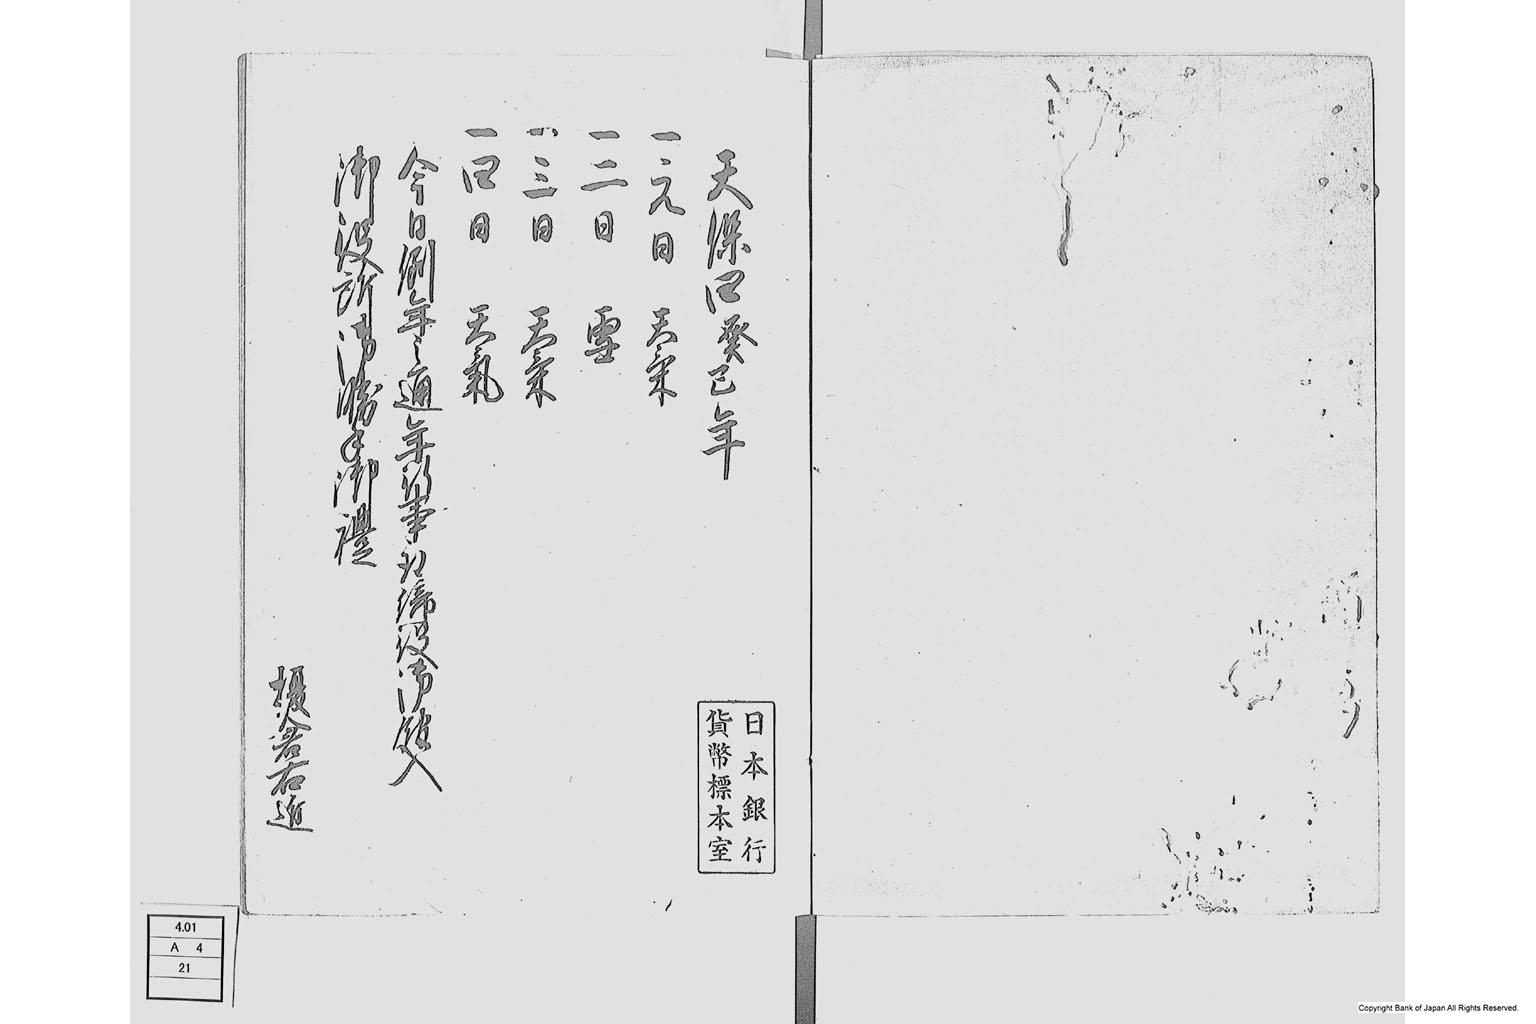 天保四癸巳年
一元日 天気
一二日 雪
一三日 天気
一四日 天氣
今日例年之通年行事
御役所御勝手御禮
右進
日本銀行
貨幣標本室
4.01
A 4
21
Copyright Bank of Japan All Rights Reserved.